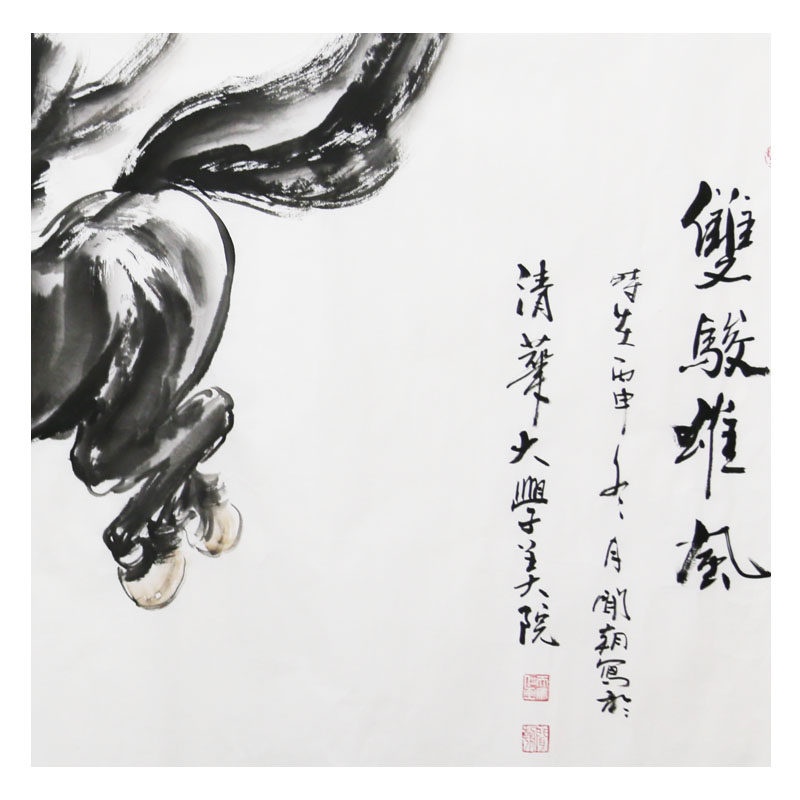 雙駿雄風
時在丙申冬月朝寫於
清華大學美院